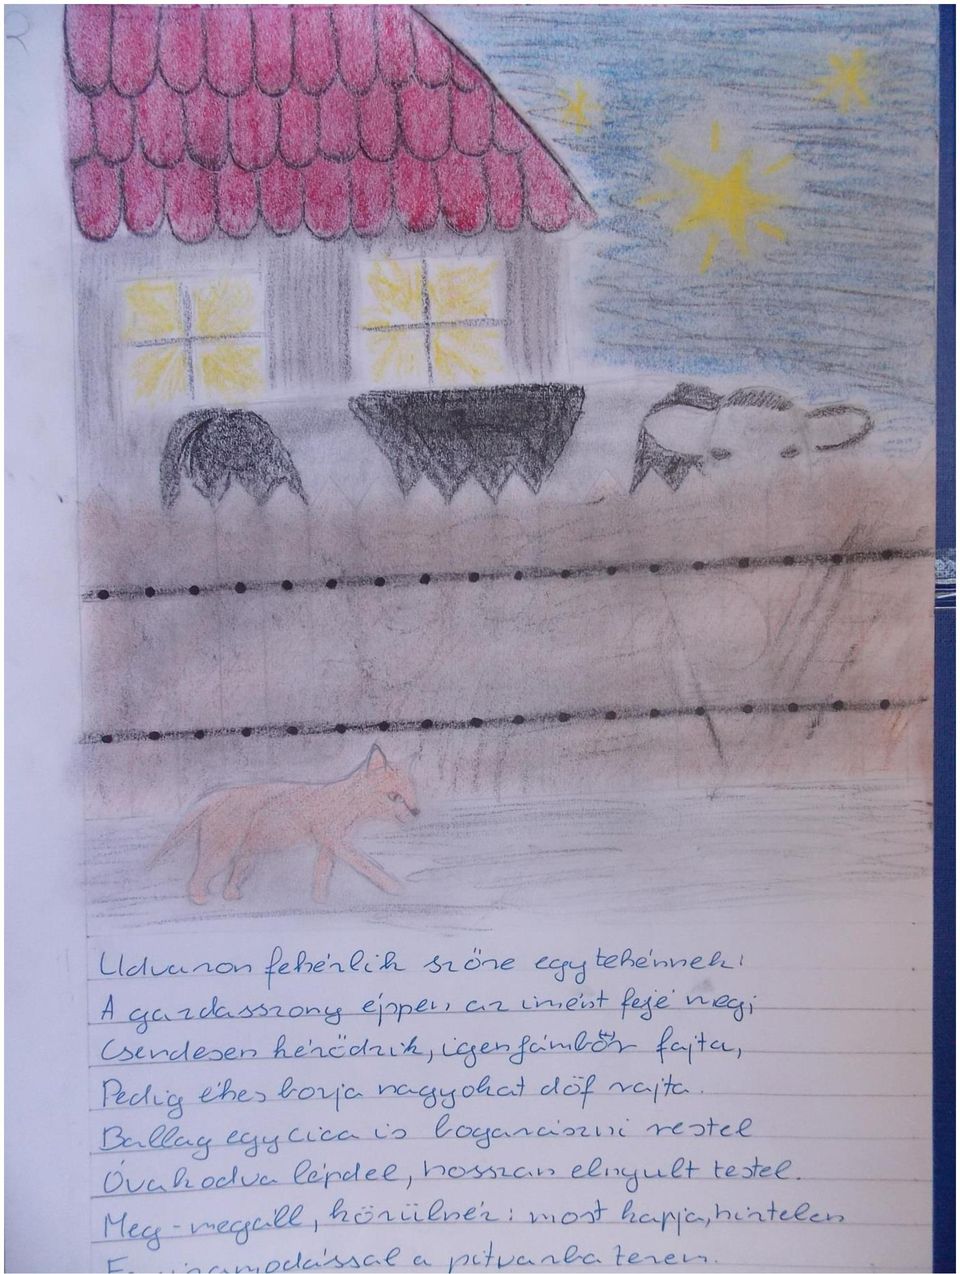 Udvaron fehérlik szőre egy tehénnek:
A gazdasszony éppen az imént fejé meg;
Csendesen kérődzik, igen jámbor fajta,
Pedig éhes borja nagyokat döf rajta.
Ballag egy cica is bogarászni restel
Óvakodva lépdel, hosszan elnyult testel.
Meg-megáll, körülnéz: most kapja, hirtelen
Egy iramodással a pitvarba terem.